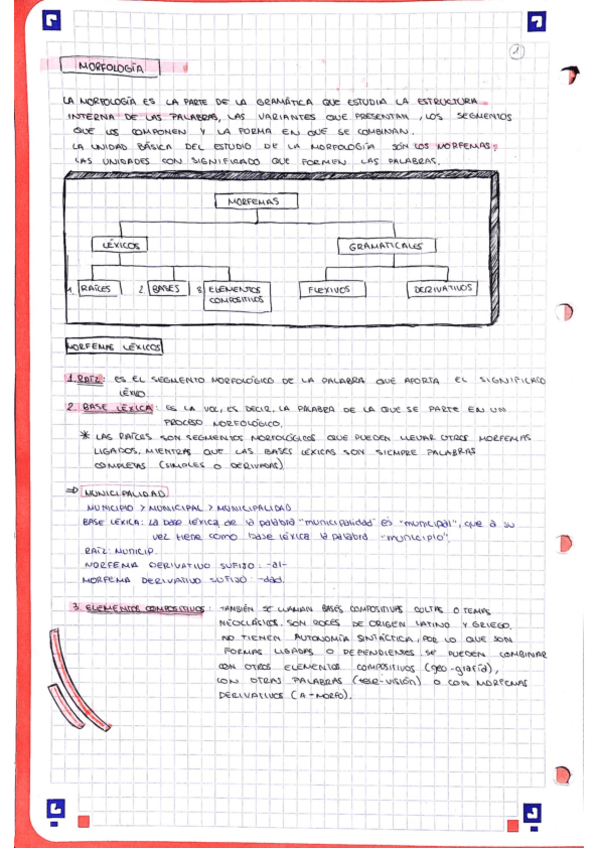 1
MORFOLOGÍA
LA MORFOLOGÍA ES LA PARTE DE LA GRAMÁTICA QUE ESTUDIA LA ESTRUCTURA
INTERNA DE LAS PALABRAS, LAS VARIANTES QUE PRESENTAN, LOS SEGMENTOS
QUE LOS COMPONEN Y LA FORMA EN QUE SE COMBINAN.
LA UNIDAD BÁSICA DEL ESTUDIO DE LA MORFOLOGÍA SON LOS MORFEMAS:
LAS UNIDADES CON SIGNIFICADO QUE FORMEN LAS PALABRAS.
MORFEMAS
LÉXICOS GRAMATICALES
1. RAÍCES 2. BASES 3. ELEMENTOS COMPOSITIVOS FLEXIVOS DERIVATIVOS
MORFEMAS LÉXICOS
1. RAÍZ: ES EL SEGMENTO MORFOLÓGICO DE LA PALABRA QUE APORTA EL SIGNIFICADO
LÉXICO.
2. BASE LÉXICA: ES LA VOZ, ES DECIR, LA PALABRA DE LA QUE SE PARTE EN UN
PROCESO MORFOLÓGICO.
* LAS RAÍCES SON SEGMENTOS MORFOLÓGICOS QUE PUEDEN LLEVAR OTROS MORFEMAS
LIGADOS, MIENTRAS QUE LAS BASES LÉXICAS SON SIEMPRE PALABRAS
COMPLETAS (SIMPLES O DERIVADAS)
⇒ MUNICIPALIDAD
MUNICIPIO > MUNICIPAL > MUNICIPALIDAD
BASE LÉXICA: La base léxica de la palabra "municipalidad" es "municipal", que a su
vez tiene como base léxica la palabra "municipio".
RAÍZ: MUNICIP.
MORFEMA DERIVATIVO SUFIJO: -al-
MORFEMA DERIVATIVO SUFIJO: -dad.
3. ELEMENTOS COMPOSITIVOS: TAMBIÉN SE LLAMAN BASES COMPOSITIVAS CULTAS O TEMAS
NEOCLÁSICOS. SON VOCES DE ORIGEN LATINO Y GRIEGO.
NO TIENEN AUTONOMÍA SINTÁCTICA, POR LO QUE SON
FORMAS LIGADAS O DEPENDIENTES. SE PUEDEN COMBINAR
CON OTROS ELEMENTOS COMPOSITIVOS (geo-grafía),
CON OTRAS PALABRAS (tele-visión) O CON MORFEMAS
DERIVATIVOS (A-MORFO).